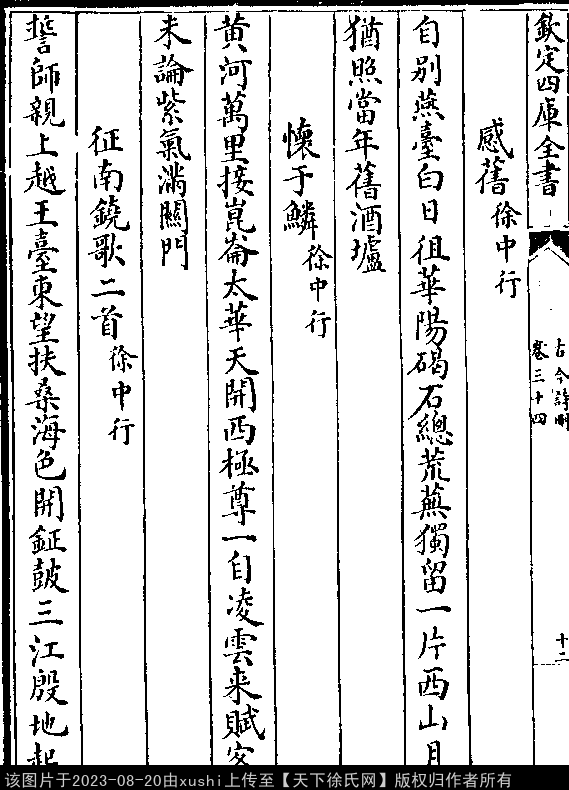 欽定四庫全書
古今詩刪
卷三十四
十二
感舊 徐中行
自別燕臺白日徂華陽碣石總荒蕪獨留一片西山月
猶照當年舊酒壚
懷于鱗 徐中行
黃河萬里接崑崙太華天開西極尊一自凌雲来賦客
未論紫氣滿關門
征南鐃歌二首 徐中行
誓師親上越王臺東望扶桑海色開鉦鼓三江殷地起
该图片于2023-08-20由xushi上传至【天下徐氏网】版权归作者所有